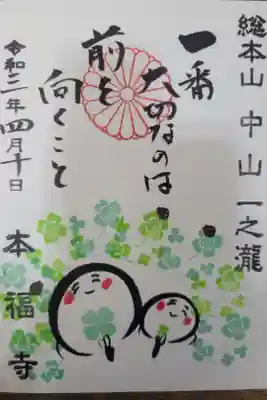 総本山 中山一之瀧
一番
大切なのは
前を
向くこと
令和三年四月十日
本福寺